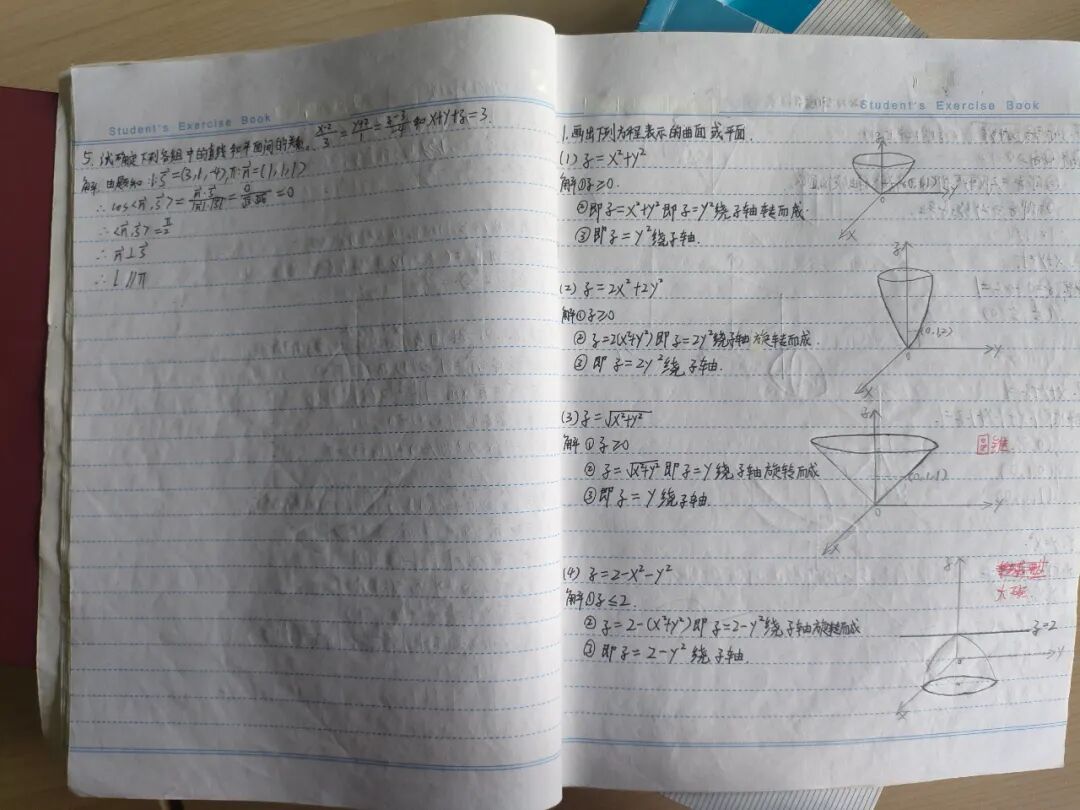 Student's Exercise Book
5. 试确定下列各组中的直线和平面间的关系. (x-2)/3 = (y+2)/1 = (z-3)/-4 和 x+y+z=3.
解: 由题知 l: s⃗=(3,1,-4), π: n⃗=(1,1,1)
∴ cos<n⃗,s⃗> = n⃗·s⃗/|n⃗|·|s⃗| = 0/√3·√26 = 0
∴ <n⃗,s⃗> = π/2
∴ n⃗⊥s⃗
∴ L∥π
Student's Exercise Book
1. 画出下列方程表示的曲面或平面.
(1) z=x²+y²
解①z≥0.
②即z=x²+y² 即z=y²绕z轴转而成.
③即z=y²绕z轴.
z
o
y
x
(2) z=2x²+2y²
解①z≥0
②z=2(x²+y²)即z=2y²绕z轴旋转而成.
③即z=2y²绕z轴.
z
(0,1,2)
o
y
x
(3) z=√x²+y²
解①z≥0
②z=√x²+y² 即z=y绕z轴旋转而成
③即z=y绕z轴.
z
圆锥.
(0,1,1)
o
y
x
(4) z=2-x²-y²
解①z≤2.
②z=2-(x²+y²)即z=2-y²绕z轴旋转而成
③即z=2-y²绕z轴.
z
z=2
o
y
x